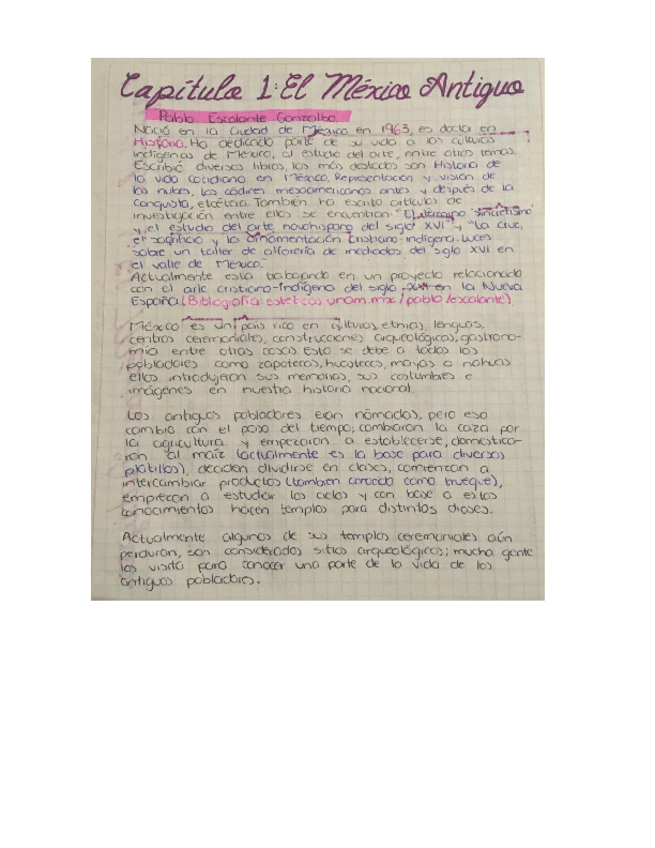 Capítulo 1: El México Antiguo
Pablo Escalante Gonzalbo.
Nació en la Ciudad de México en 1963, es doctor en
Historia. Ha dedicado parte de su vida a las culturas
indígenas de México, al estudio del arte, entre otros temas.
Escribió diversos libros, los más destacados son Historia de
la vida cotidiana en México, Representación y visión de
los nahuas, los códices mesoamericanos antes y después de la
Conquista, etcétera. También ha escrito artículos de
investigación entre ellos se encuentran: "El término "sincretismo"
y el estudio del arte novohispano del siglo XVI" y "La cruz,
el sacrificio y la ornamentación cristiano-indígena. Luces
sobre un taller de alfarería de mediados del siglo XVI en
el valle de México."
Actualmente esta trabajando en un proyecto relacionado
con el arte cristiano-indígena del siglo en la Nueva
España (Bibliografía: esteticas.unam.mx/pablo/escalante).
México es un país rico en culturas, etnias, lenguas,
centros ceremoniales, construcciones arqueológicas, gastrono-
mía entre otras cosas. Esto se debe a todos los
pobladores como zapotecas, huastecos, mayas o nahuas
ellos introdujeron sus memorias, sus costumbres e
imágenes en nuestra historia nacional.
Los antiguos pobladores eran nómadas, pero eso
cambio con el paso del tiempo; cambiaron la caza por
la agricultura y empezaron a establecerse, domestica-
ron al maíz (actualmente es la base para diversos
platillos), deciden dividirse en clases, comienzan a
intercambiar productos (tambien conocido como trueque),
empiezan a estudiar los ciclos y con base a estos
conocimientos hacen templos para distintos dioses.
Actualmente algunos de sus templos ceremoniales aún
perduran, son considerados sitios arqueológicos; mucha gente
los visita para conocer una parte de la vida de los
antiguos pobladores.